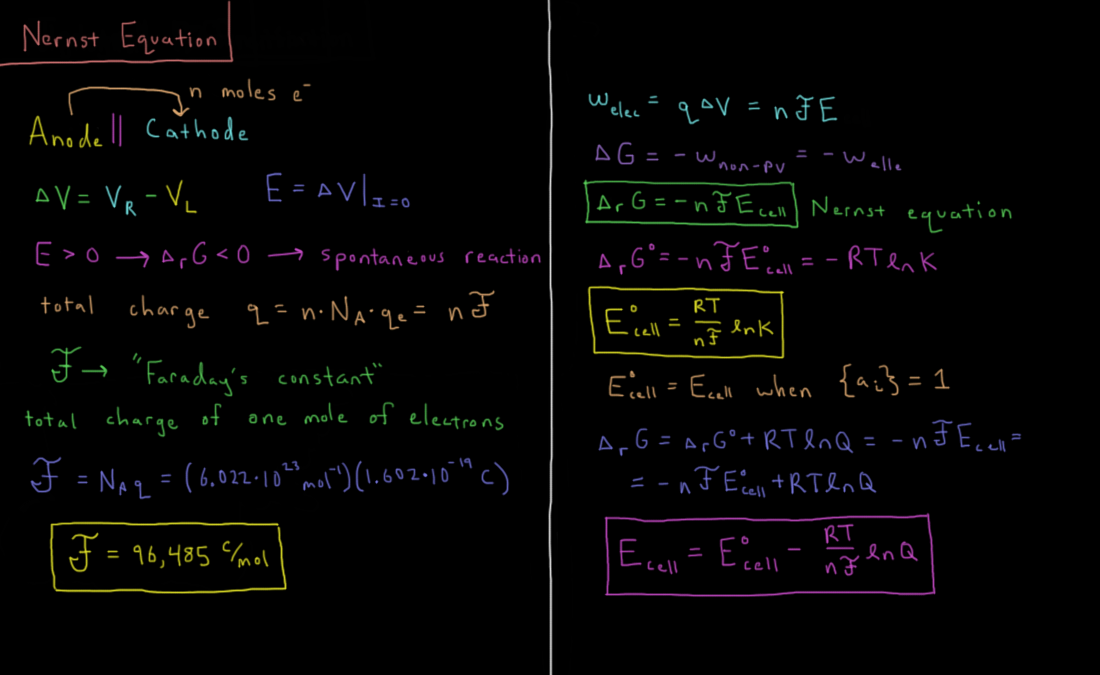 Nernst Equation
n moles e⁻
Anode || Cathode
ΔV = V_R - V_L   E = ΔV|_I=0
E > 0 → Δ_rG < 0 → spontaneous reaction
total charge q = n·N_A·q_e = nℱ
ℱ → "Faraday's constant"
total charge of one mole of electrons
ℱ = N_A q = (6.022·10²³ mol⁻¹)(1.602·10⁻¹⁹ C)
ℱ = 96,485 C/mol
w_elec = qΔV = nℱE
ΔG = -w_non-pv = -w_elle
Δ_rG = -nℱE_cell Nernst equation
Δ_rG° = -nℱE°_cell = -RT ln K
E°_cell = RT/nℱ ln K
E°_cell = E_cell when {a_i} = 1
Δ_rG = Δ_rG° + RT ln Q = -nℱE_cell =
= -nℱE°_cell + RT ln Q
E_cell = E°_cell - RT/nℱ ln Q